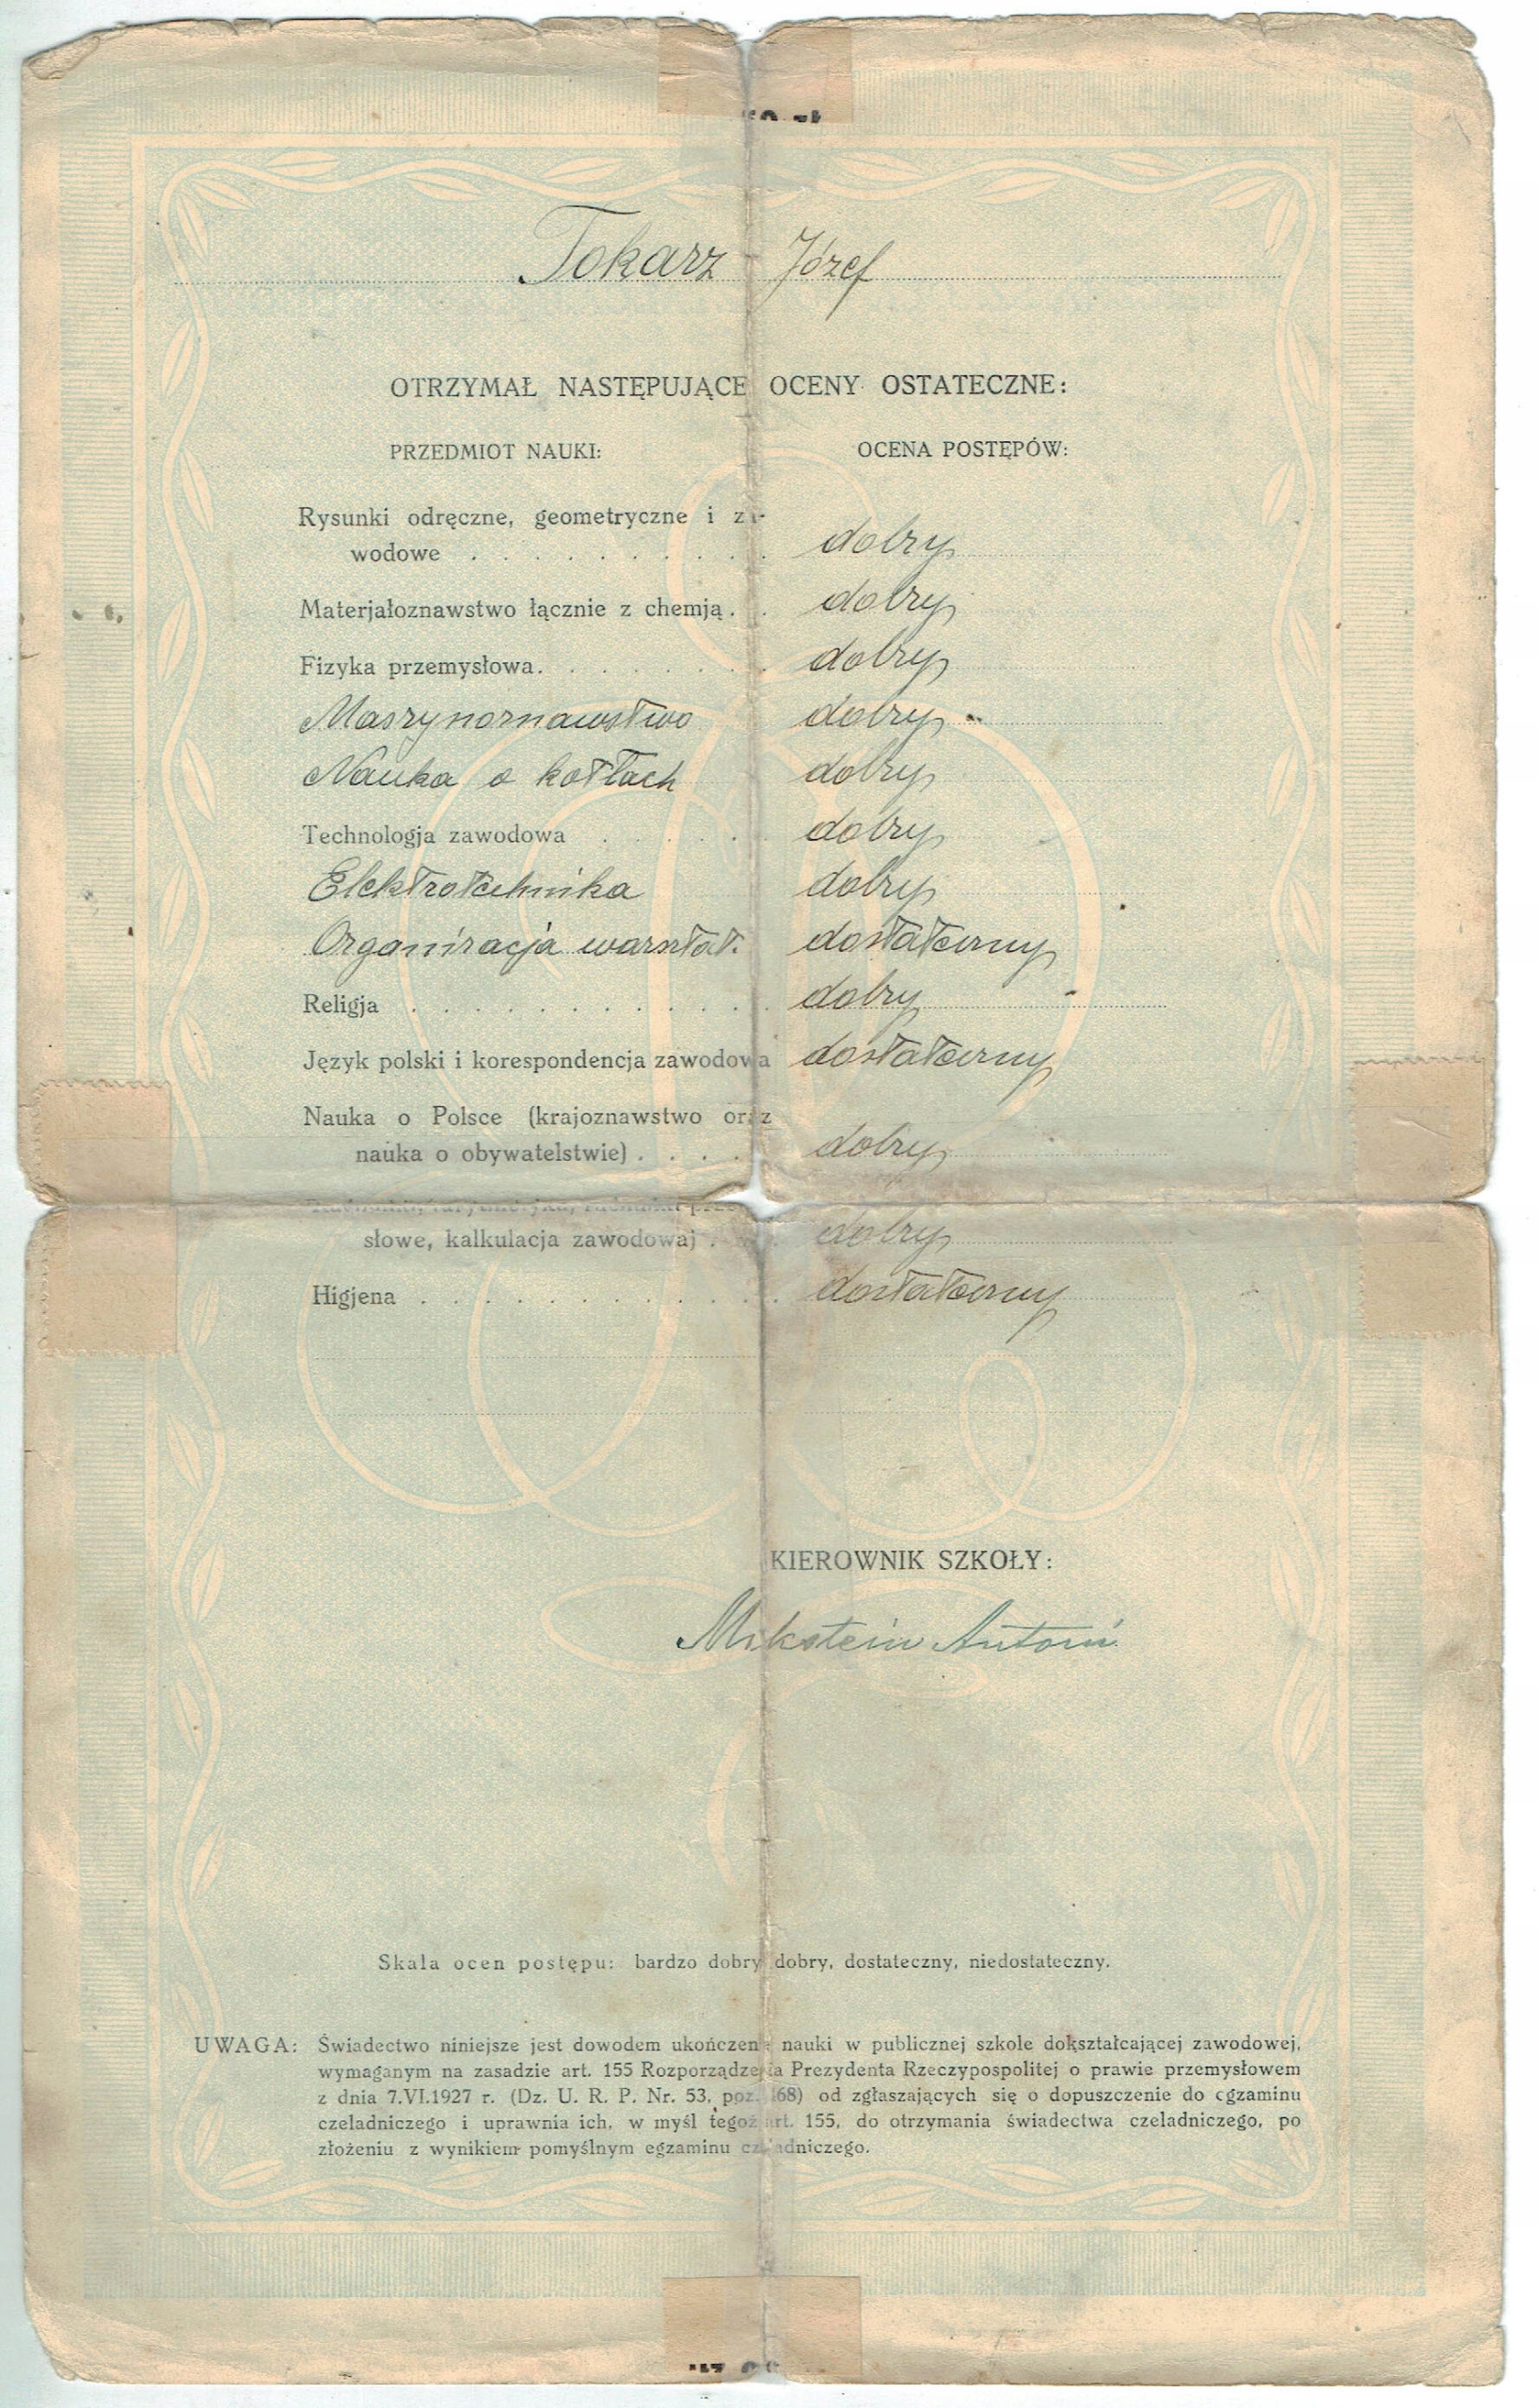 Tokarz Józef
OTRZYMAŁ NASTĘPUJĄCE OCENY OSTATECZNE:
PRZEDMIOT NAUKI: OCENA POSTĘPÓW:
Rysunki odręczne, geometryczne i za-
wodowe . . . . . . . . . . dobry
Materjałoznawstwo łącznie z chemją . . dobry
Fizyka przemysłowa . . . . . . . . dobry
Maszynoznawstwo dobry
Nauka o kotłach dobry
Technologja zawodowa . . . . . . dobry
Elektrotechnika dobry
Organizacja warsztat. dostateczny
Religja . . . . . . . . . . . . dobry
Język polski i korespondencja zawodowa dostateczny
Nauka o Polsce (krajoznawstwo oraz
nauka o obywatelstwie) . . . . dobry
słowe, kalkulacja zawodowa) . . . dobry
Higjena . . . . . . . . . . . . dostateczny
KIEROWNIK SZKOŁY:
Mikstein Antoni
Skala ocen postępu: bardzo dobry dobry, dostateczny, niedostateczny.
UWAGA: Świadectwo niniejsze jest dowodem ukończenia nauki w publicznej szkole dokształcającej zawodowej,
wymaganym na zasadzie art. 155 Rozporządzenia Prezydenta Rzeczypospolitej o prawie przemysłowem
z dnia 7.VI.1927 r. (Dz. U. R. P. Nr. 53, poz. 468) od zgłaszających się o dopuszczenie do egzaminu
czeladniczego i uprawnia ich, w myśl tegoż art. 155, do otrzymania świadectwa czeladniczego, po
złożeniu z wynikiem pomyślnym egzaminu czeladniczego.